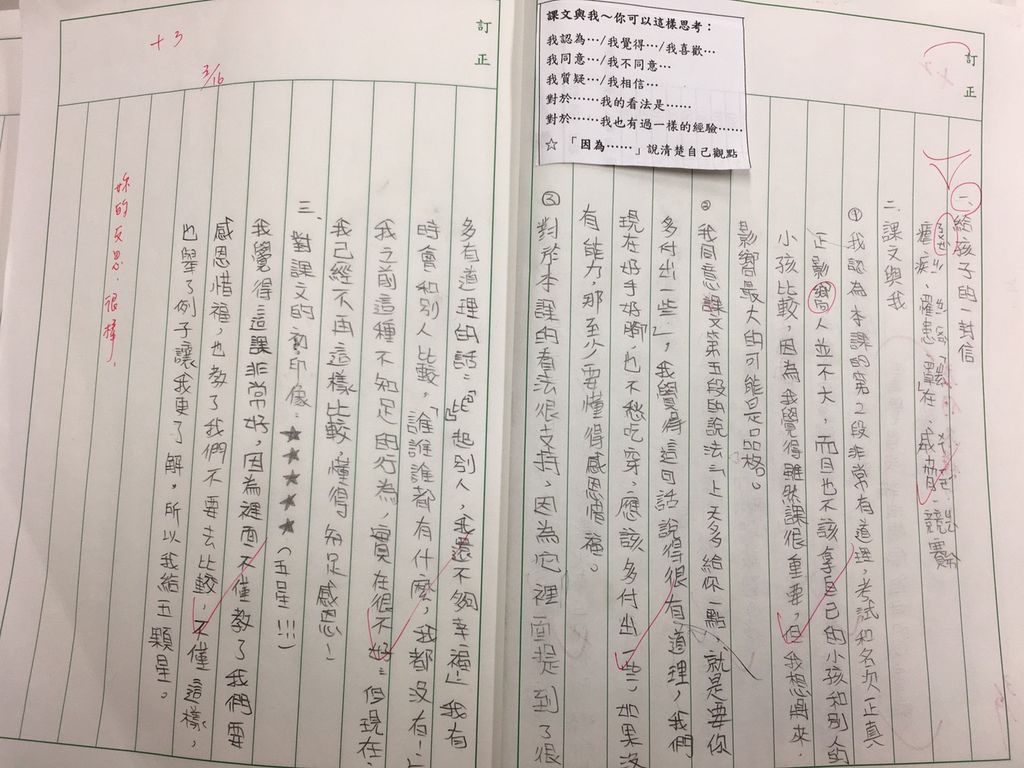 課文與我～你可以這樣思考：
我認為…/我覺得…/我喜歡…
我同意…/我不同意…
我質疑…/我相信…
對於……我的看法是……
對於……我也有過一樣的經驗……
☆「因為……」說清楚自己觀點
訂正
一、給孩子的一封信
二、課文與我
①我認為本課的第2段非常有道理，考試和名次正真
正影響人並不大，而且也不該拿自己的小孩和別人的
小孩比較，因為我覺得雖然課很重要，但我想將來，
影響最大的可能是品格。
②我同意課文第五段的說法：「上天多給你一點，就是要你
多付出一些」，我覺得這句話說得很有道理，我們
現在好手好腳，也不愁吃穿，應該多付出一些，如果沒
有能力，那至少要懂得感恩惜福。
③對於本課的看法很支持，因為它裡面提到了很
訂正
+3
3/16
多有道理的話：「比起別人，我還不夠幸福」我有
時會和別人比較，「誰誰誰都有什麼，我都沒有！」
我之前這種不知足的行為，實在很不好；但現在，
我已經不再這樣比較，懂得知足感恩！
三、對課文的初印象：★★★★★（五星！！！）
我覺得這課非常好，因為裡面不僅教了我們要
感恩惜福，也教了我們不要去比較，不僅這樣，
也舉了例子讓我更了解，所以我給五顆星。
妳的反思，很棒，